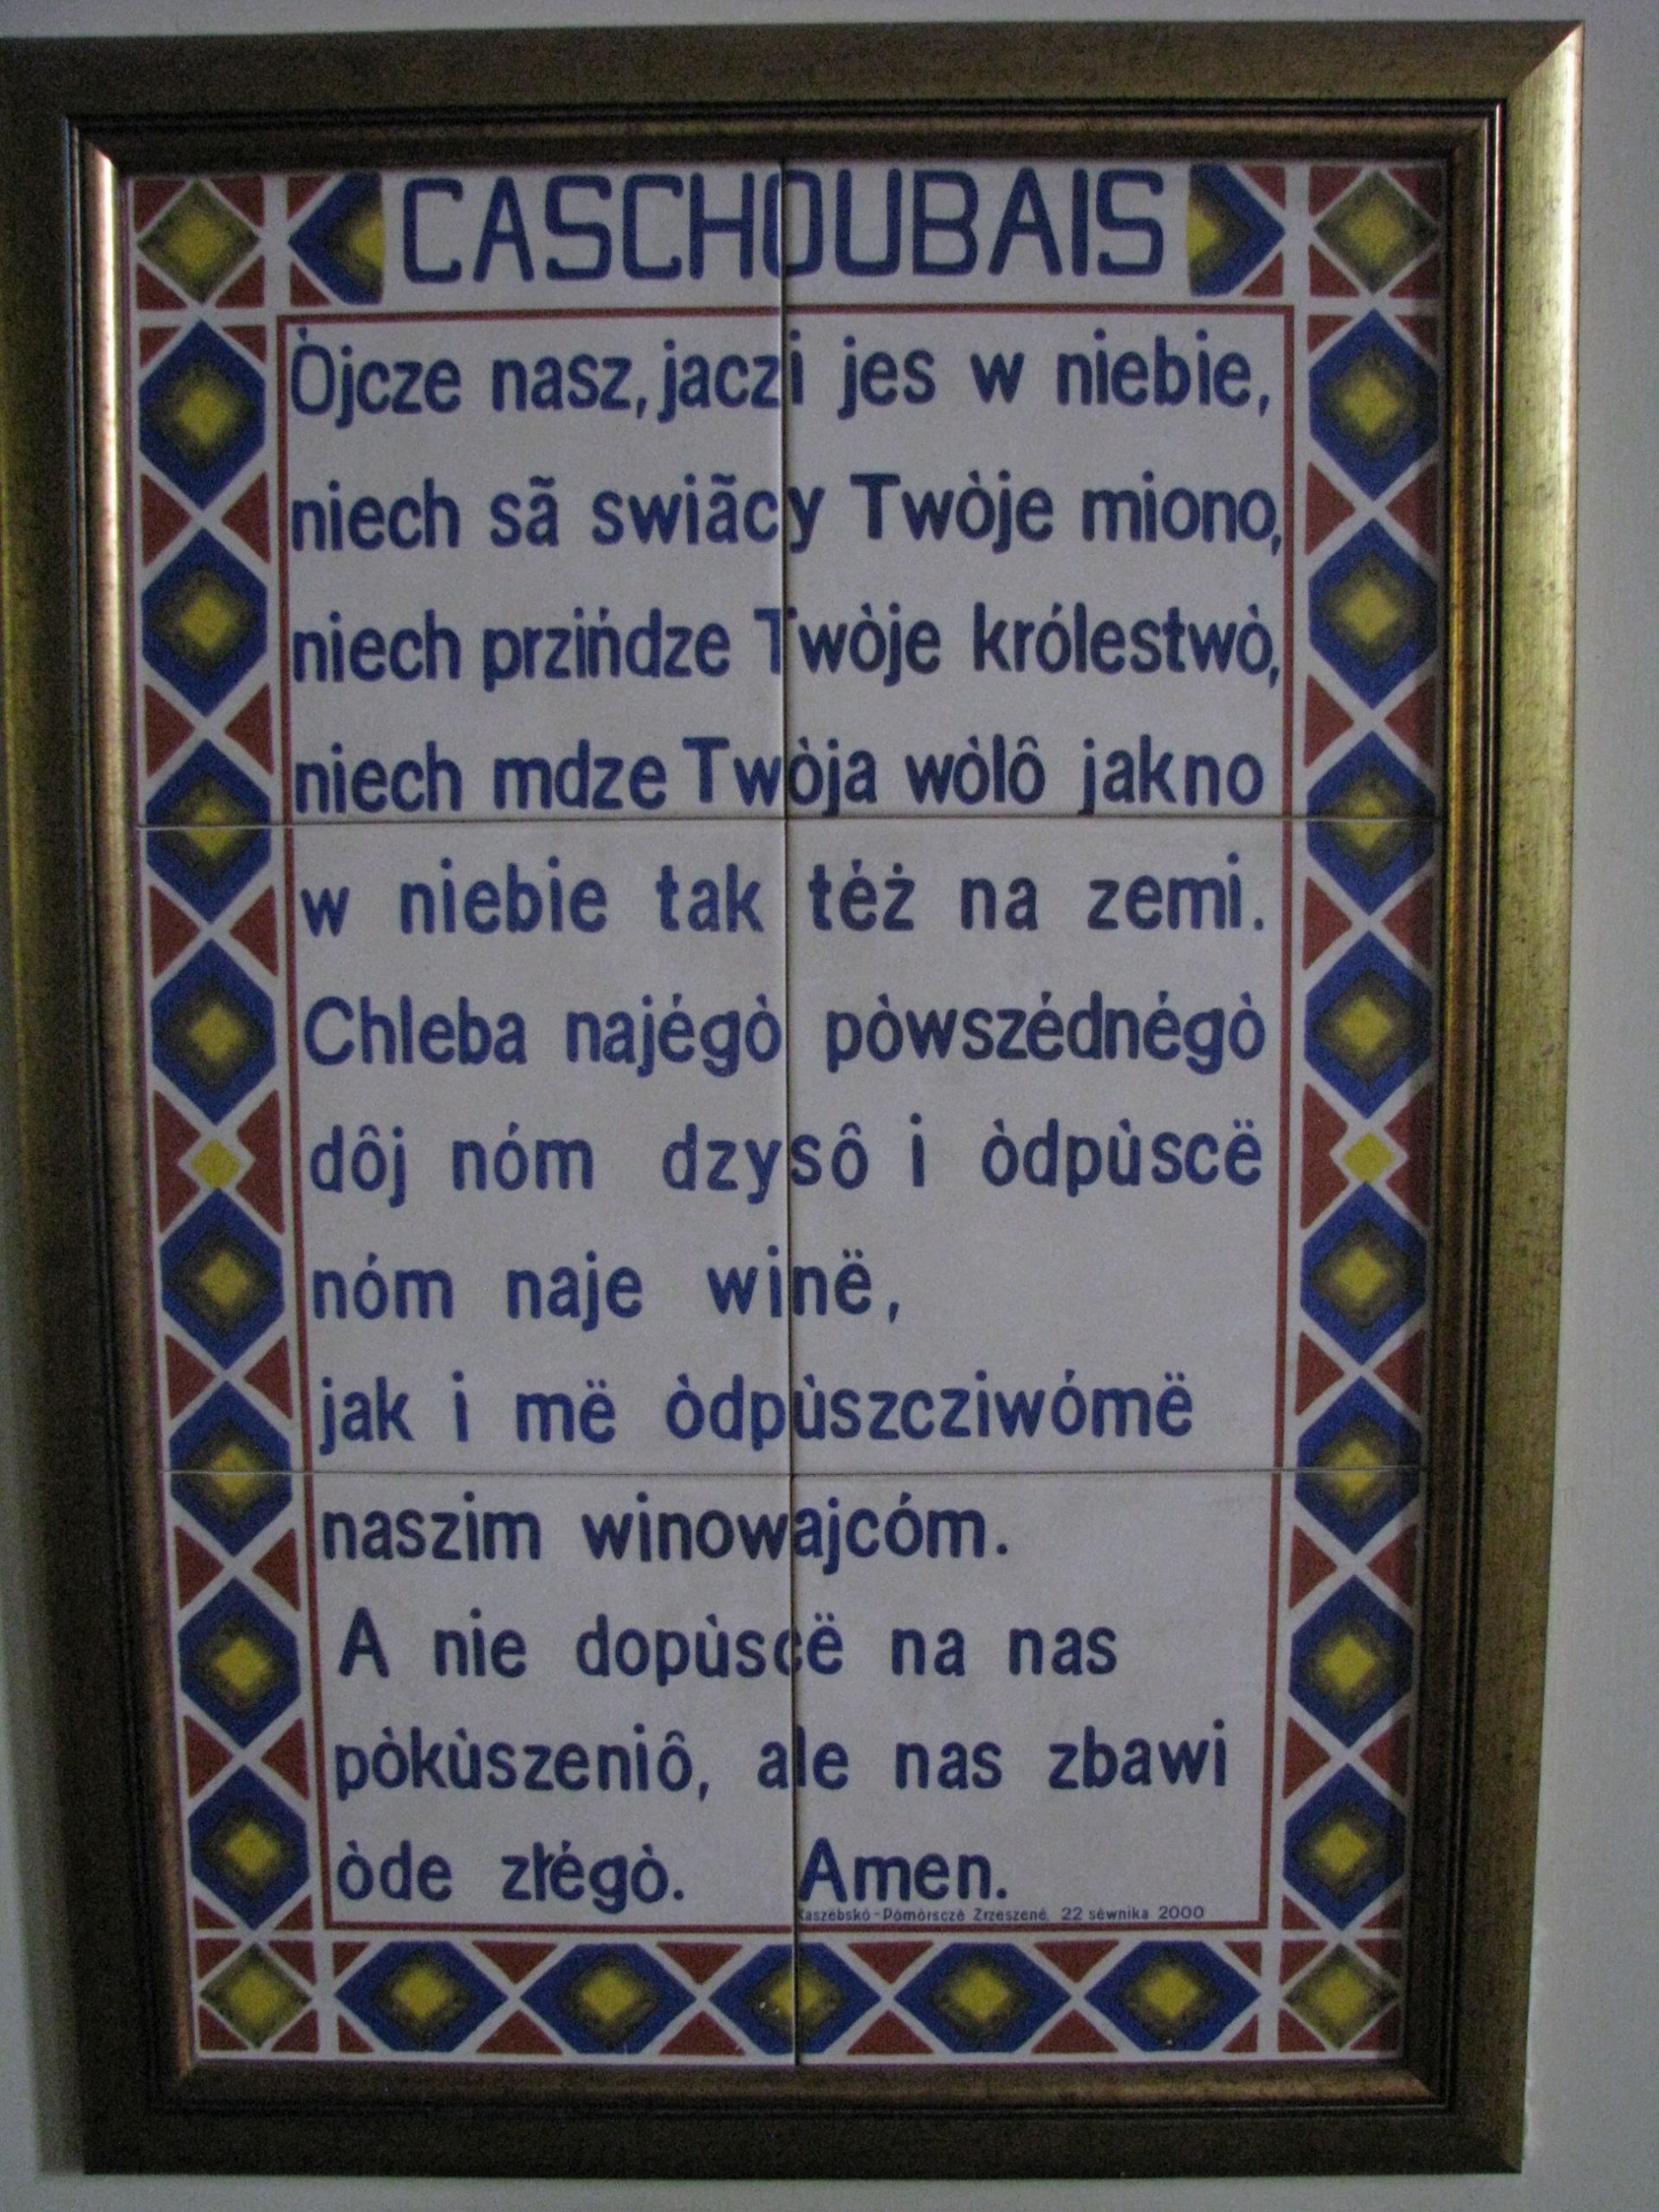 CASCHOUBAIS
Òjcze nasz, jaczi jes w niebie,
niech sã swiãcy Twòje miono,
niech przińdze Twòje królestwò,
niech mdze Twòja wòlô jakno
w niebie tak téż na zemi.
Chleba najégò pòwszédnégò
dôj nóm dzysô i òdpùscë
nóm naje winë,
jak i më òdpùszcziwómë
naszim winowajcóm.
A nie dopùscë na nas
pòkùszeniô, ale nas zbawi
òde złégò. Amen.
Kaszëbskó-Pòmòrsczé Zrzeszené, 22 séwnika 2000